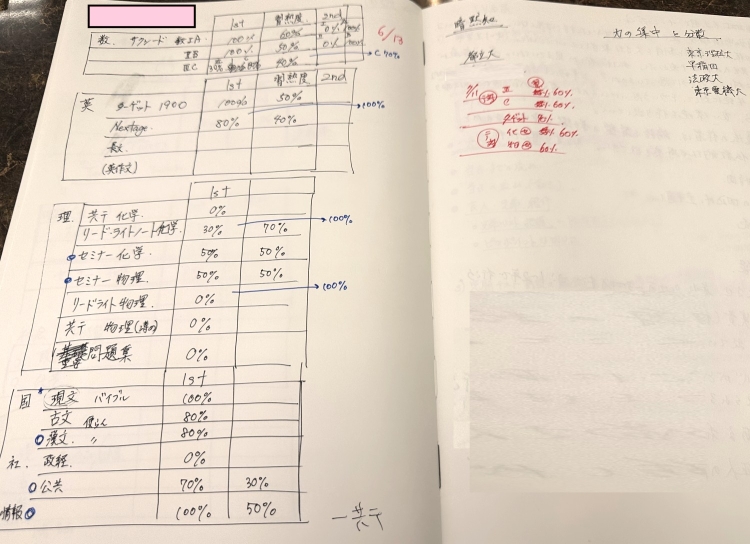 1st 習熟度 2nd
数. サクシード 数ⅠA 100% 60% 0%
ⅡB 100% 50% 0%
ⅢC 40% → C 70%
6/13
1st 習熟度 2nd
英 ターゲット 1900 100% 50%
→100%
Nextage. 80% 40%
長文
(英作文)
1st
理. 共テ 化学. 0%
→100%
リードライトノート化学 30% 70%
セミナー化学 50% 50%
セミナー物理. 50% 50%
→100%
リードライト物理. 0%
共テ 物理 0%
問題集 0%
1st
国 現文 バイブル 100%
古文 80%
漢文. 〃 80%
社. 政経. 0%
公共 70% 30%
情報 100% 50%
共テ
力の集中 と 分散.
東京理大
早稲田
法政大
東京電機大
Ⅲ 60%
C 60%
ターゲット
化 60%
物 60%